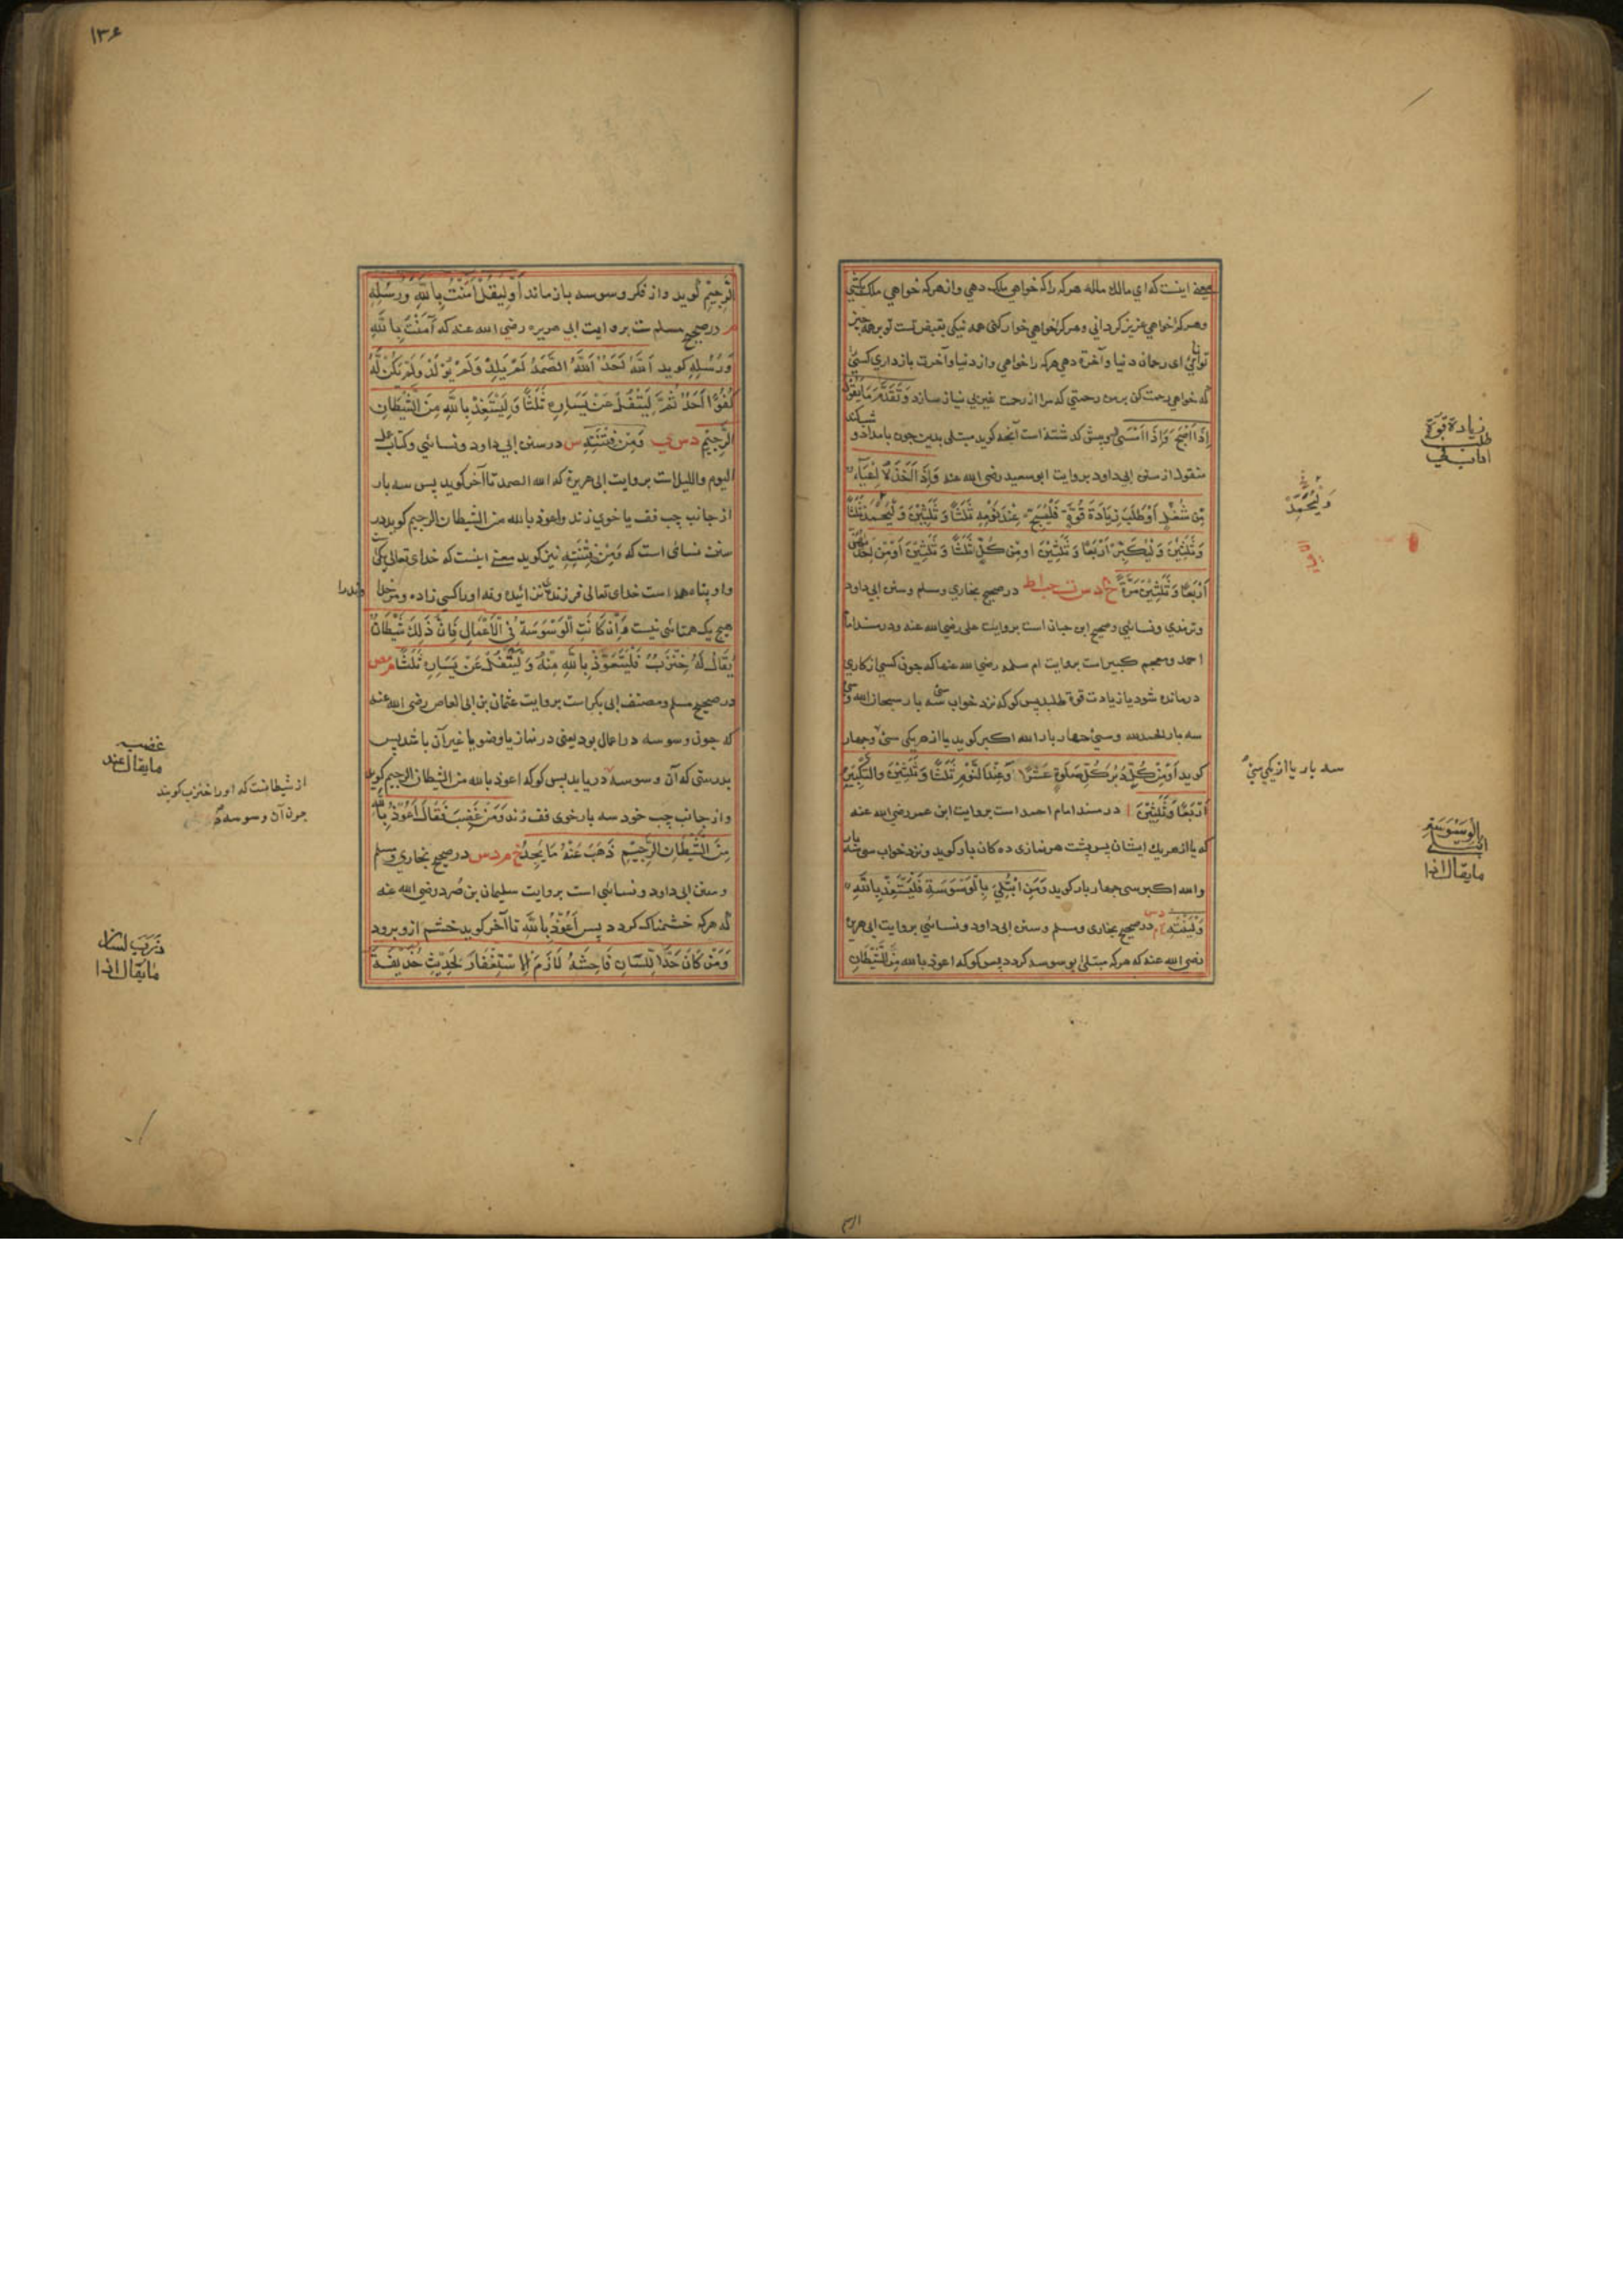 معنی اینست که ای مالك ملك هرکه را که خواهي ملك دهي و از هرکه خواهي ملك
وهرکرا خواهي عزیز کرداني وهرکرا خواهي خوار کني همه نیکي بقبض تست تو بر همه چیز
توانائي ای رحمان دنیا وآخرة دهي هرکه را خواهي واز دنیا وآخرت بازداري کسي
که خواهي رحمت کن بر من رحمتي که مرا از رحمت غیر بي نیاز سازد وَتَقَدَّمَ مَا یَقُولُ
إِذَا أَصْبَحَ وَإِذَا أَمْسَى وپیش کذشته است آنچه کوید مبتلی بدین چون بامداد و
منقول از سنن ابي داود بروایت ابو سعید رضي الله عنه وَإِذَا أَخَذَهُ إِعْيَاءٌ
مِنْ شُغْلٍ أَوْ طَلَبَ زِيَادَةَ قُوَّةٍ فَلْيُسَبِّحْ عِنْدَ نَوْمِهِ ثَلٰثًا وَثَلٰثِيْنَ وَلْيُحَمِّدْ ثَلٰثًا
وَثَلٰثِيْنَ وَلْيُكَبِّرْ أَرْبَعًا وَثَلٰثِيْنَ أَوْ مِنْ كُلٍّ ثَلٰثًا وَثَلٰثِيْنَ أَوْ مِنْ إِحْدٰهُنَّ
أَرْبَعًا وَثَلٰثِيْنَ مَرَّةً خ م د س ت حب ا ط در صحیح بخاري ومسلم وسنن ابي داود
وترمذي ونسائي وصحیح ابن حبان است بروایت علي رضي الله عنه ودر مسند امام
احمد ومعجم کبیر است بروایت ام سلمه رضي الله عنها که چون کسي از کاري
درمانده شود یا زیادت قوة طلبد پس کو که نزد خواب سي سه بار سبحان الله وسي
سه بار الحمد لله وسي چهار بار الله اکبر کوید یا از هر یکي سي وچهار
کوید أَوْ مِنْ كُلٍّ دُبُرَ كُلِّ صَلٰوةٍ عَشْرًا وَعِنْدَ النَّوْمِ ثَلٰثًا وَثَلٰثِيْنَ وَالتَّكْبِيْرُ
أَرْبَعًا وَثَلٰثِيْنَ ا در مسند امام احمد است بروایت ابن عمر رضي الله عنه
که یا از هر یك ایشان پس پشت هر نمازي ده کان بار کوید ونزد خواب سي سه بار
والله اکبر سي چهار بار کوید وَمَنِ ابْتُلِيَ بِالْوَسْوَسَةِ فَلْيَسْتَعِذْ بِاللّٰهِ
وَلْيَنْتَهِ خ م د س در صحیح بخاري ومسلم وسنن ابي داود ونسائي بروایت ابي هریرة
رضي الله عنه که هرکه مبتلی بوسوسه کردد پس کو که اعوذ بالله من الشَّيْطَانِ
زیادة قوة
طلب
وَلْيُحَمِّدْ
سه بار یا از یکي سي
الوسوسة
ابتلي
ما یقال اذا
۱۳۶
الرَّجِيْمِ کوید واز فکر وسوسه باز ماند أَوْ لِيَقُلْ آمَنْتُ بِاللّٰهِ وَرُسُلِهِ
م در صحیح مسلم است بروایت ابي هریره رضي الله عنه که آمَنْتُ بِاللّٰهِ
وَرُسُلِهِ کوید اَللّٰهُ اَحَدٌ اَللّٰهُ الصَّمَدُ لَمْ يَلِدْ وَلَمْ يُوْلَدْ وَلَمْ يَكُنْ لَهُ
كُفُوًا اَحَدٌ ثُمَّ لِيَتْفُلْ عَنْ يَسَارِهِ ثَلٰثًا وَلْيَسْتَعِذْ بِاللّٰهِ مِنَ الشَّيْطَانِ
الرَّجِيْمِ د س ي وَمِنْ فِتْنَتِهِ س در سنن ابي داود ونسائي وکتاب عمل
الیوم واللیل است بروایت ابي هریرة که الله الصمد تا آخر کوید پس سه بار
از جانب چپ تف یا خوي زند واعوذ بالله من الشیطان الرجیم کوید در
سنن نسائی است که وَمِنْ فِتْنَتِهِ نیز کوید معنی اینست که خدای تعالی یکي
واو پناه همه است خدای تعالی فرزند نزائیده ونه اورا کسي زاده ومر خدا
هیچ یک همتائي نیست وَإِنْ كَانَتِ الْوَسْوَسَةُ فِي الْأَعْمَالِ فَإِنَّ ذٰلِكَ شَيْطَانٌ
يُقَالُ لَهُ خِنْزَبٌ فَلْيَتَعَوَّذْ بِاللّٰهِ مِنْهُ وَلْيَتْفُلْ عَنْ يَسَارِهِ ثَلٰثًا م مص
در صحیح مسلم ومصنف ابي بکر است بروایت عثمان بن ابي العاص رضي الله عنه
که چون وسوسه در اعمال بود یعنی در نماز یا وضو یا غیر آن باشد پس
بدرستی که آن وسوسه دریابد پس کو که اعوذ بالله من الشیطان الرجیم کوید
واز جانب چپ خود سه بار خوي تف زند وَمَنْ غَضِبَ فَقَالَ أَعُوْذُ بِاللّٰهِ
مِنَ الشَّيْطَانِ الرَّجِيْمِ ذَهَبَ عَنْهُ مَا يَجِدُ خ م د س در صحیح بخاري ومسلم
وسنن ابي داود ونسائي است بروایت سلیمان بن صُرَد رضي الله عنه
که هرکه خشمناک کردد پس أَعُوْذُ بِاللّٰهِ تا آخر کوید خشم ازو برود
وَمَنْ كَانَ حَدَّ اللِّسَانِ فَاحِشَهُ لَازَمَ الْاِسْتِغْفَارَ لِحَدِيْثِ حُذَيْفَةَ
غضب
ما یقال عند
از شیطانست که اورا خنزب کویند
چون آن وسوسه
ذرب لسان
ما یقال اذا